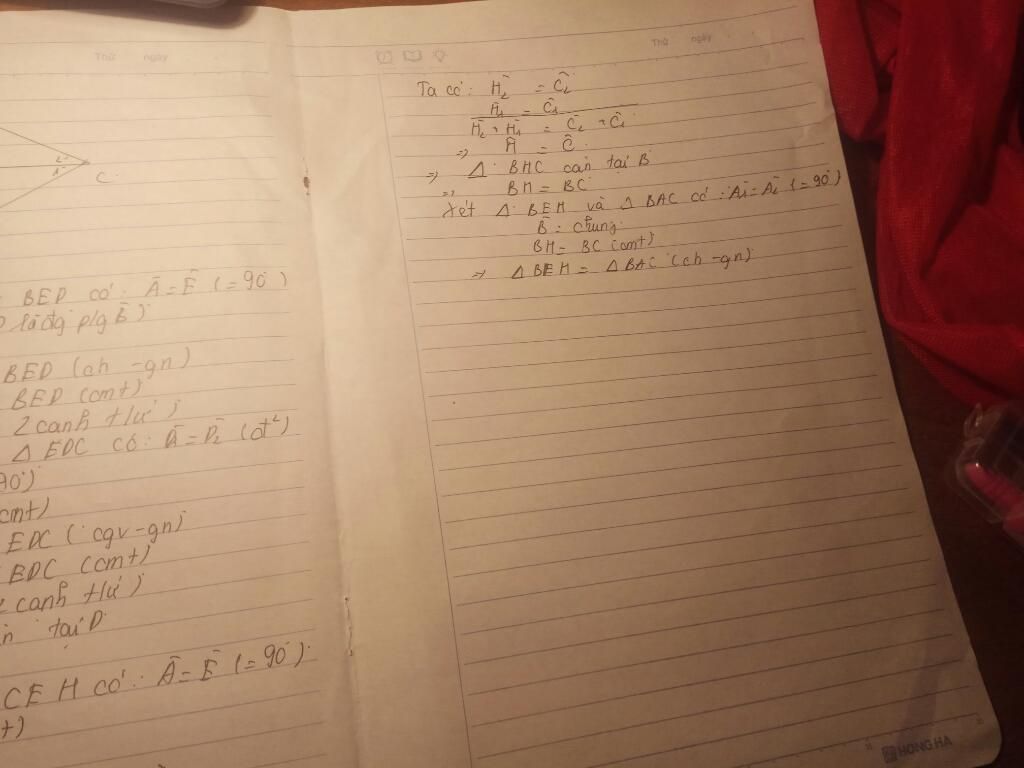 Thứ ngày
C
BED có: Â = Ê (= 90°)
là đg p/g B̂)
BED (ch - gn)
BED (cmt)
2 cạnh t/ư')
Δ EDC có: D̂₁ = D̂₂ (đ²)
90°)
cmt)
EDC (cgv - gn)
EDC (cmt)
2 cạnh t/ư')
tại D
CEH có: Â = Ê (= 90°)
t)
Thứ ngày
Ta có: Ĥ₂ = Ĉ₂
Ĥ₁ = Ĉ₁
Ĥ₂ + Ĥ₁ = Ĉ₂ + Ĉ₁
=> Ĥ = Ĉ
=> Δ BHC cân tại B
=> BH = BC
Xét Δ BEH và Δ BAC có: Â₁ = Â₂ (= 90°)
B̂: chung
BH = BC (cmt)
=> Δ BEH = Δ BAC (ch - gn)
HONG HA